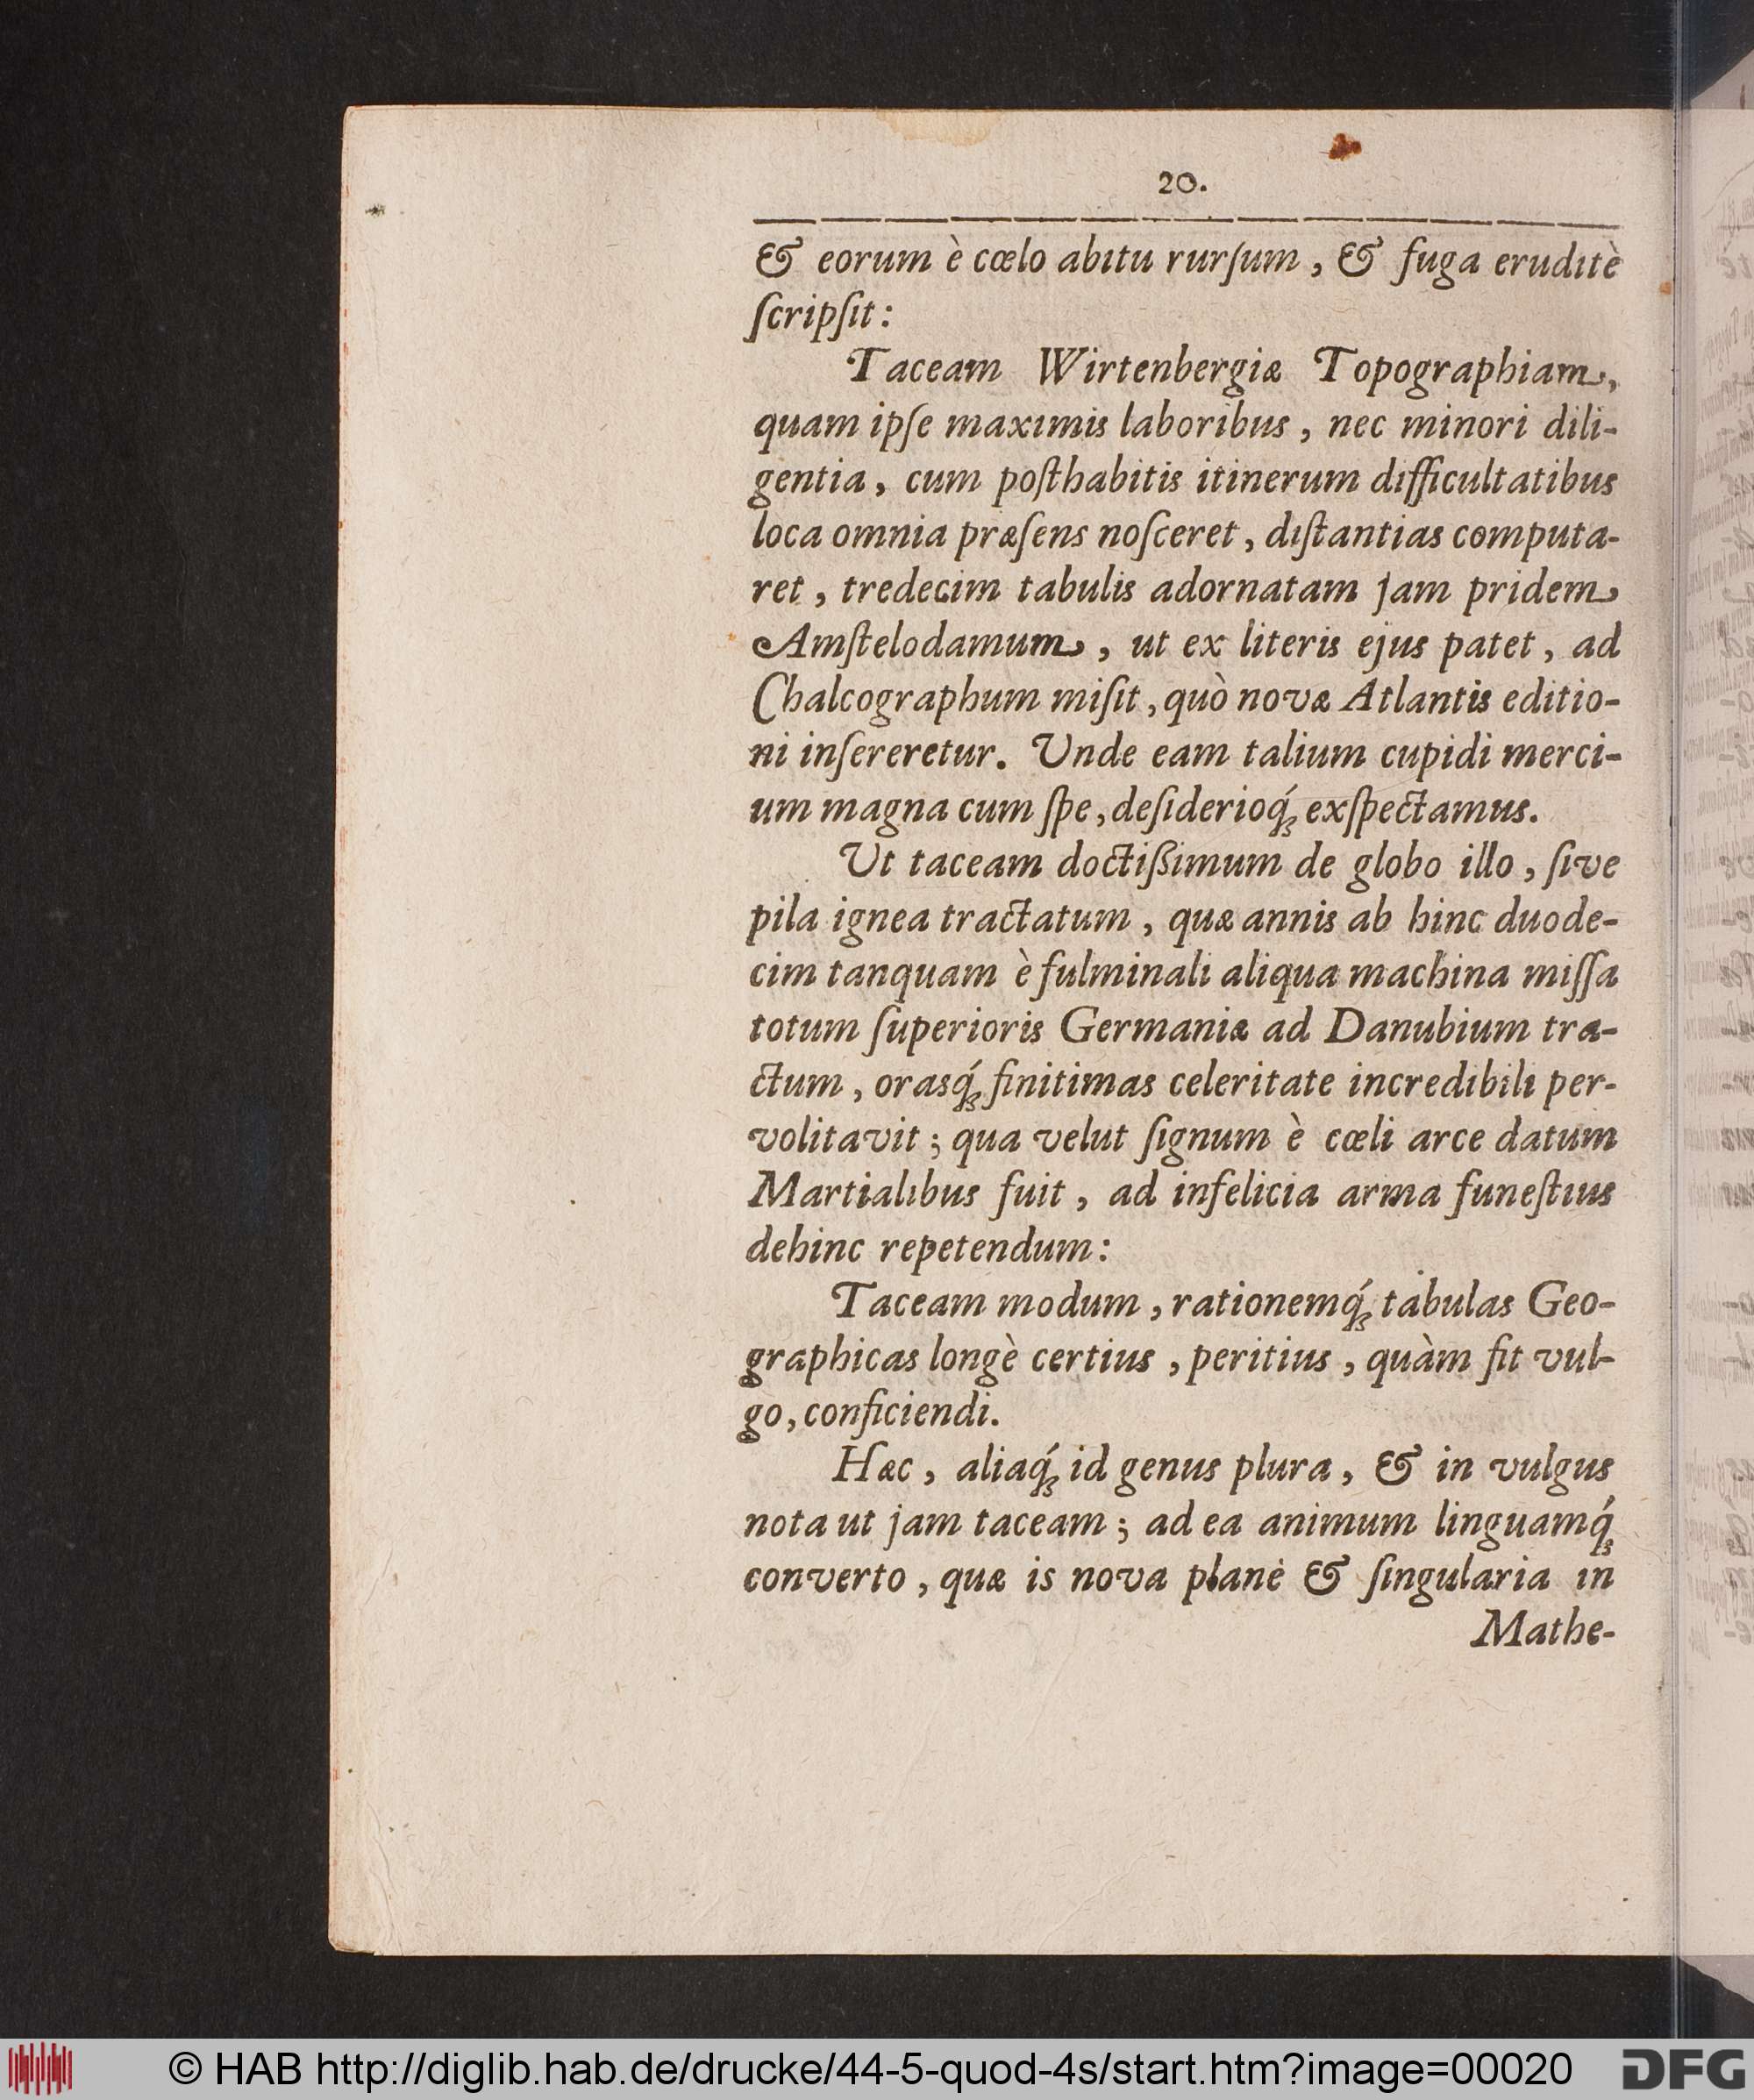 20.
& eorum è cœlo abitu rurſum, & fuga eruditè
ſcripſit:
Taceam Wirtenbergiæ Topographiam,
quam ipſe maximis laboribus, nec minori dili-
gentia, cum poſthabitis itinerum difficultatibus
loca omnia præſens noſceret, diſtantias computa-
ret, tredecim tabulis adornatam jam pridem
Amſtelodamum, ut ex literis ejus patet, ad
Chalcographum miſit, quò novæ Atlantis editio-
ni inſereretur. Unde eam talium cupidi merci-
um magna cum ſpe, deſiderioq́ꝫ exſpectamus.
Ut taceam doctißimum de globo illo, ſive
pila ignea tractatum, quæ annis ab hinc duode-
cim tanquam è fulminali aliqua machina miſſa
totum ſuperioris Germaniæ ad Danubium tra-
ctum, orasq́ꝫ finitimas celeritate incredibili per-
volitavit; qua velut ſignum è cœli arce datum
Martialibus fuit, ad infelicia arma funeſtius
dehinc repetendum:
Taceam modum, rationemq́ꝫ tabulas Geo-
graphicas longè certius, peritius, quàm fit vul-
go, conficiendi.
Hæc, aliaq́ꝫ id genus plura, & in vulgus
nota ut jam taceam; ad ea animum linguamq́ꝫ
converto, quæ is nova planè & ſingularia in
Mathe-
© HAB http://diglib.hab.de/drucke/44-5-quod-4s/start.htm?image=00020
DFG